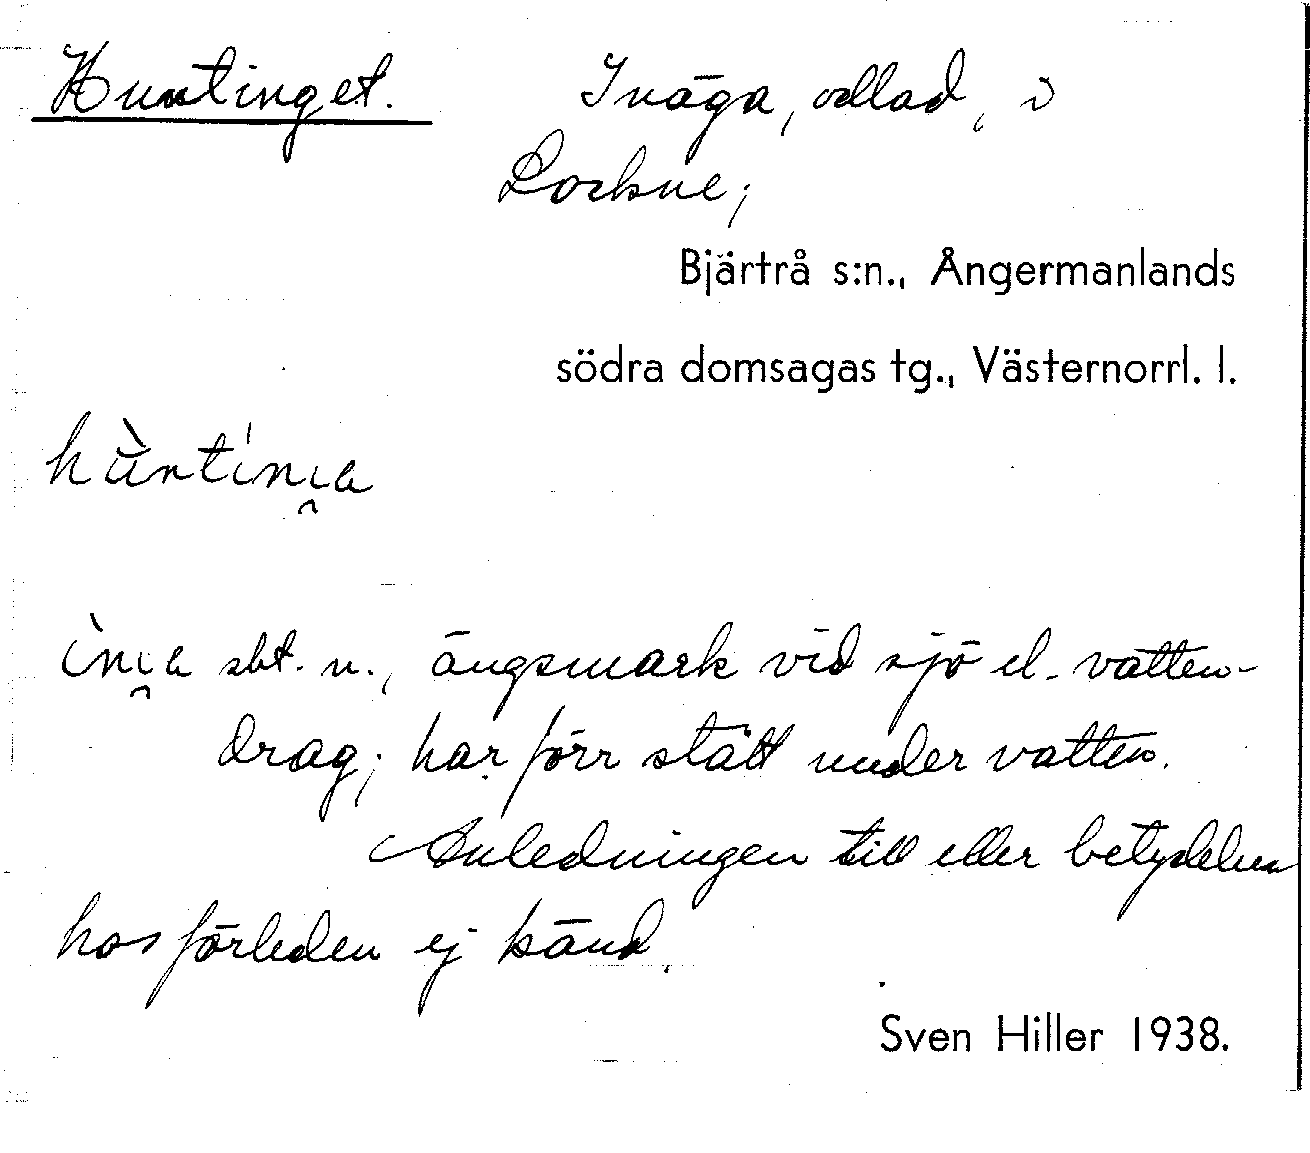 Huntinget. Inäga, odlad, i
Lockne;
Bjärtrå s:n., Ångermanlands
södra domsagas tg., Västernorrl. l.
hùntíni̯a
ìni̯a sbt. n., ängsmark vid sjö el. vatten-
drag; har förr stått under vatten.
Anledningen till eller betydelsen
hos förleden ej känd.
Sven Hiller 1938.